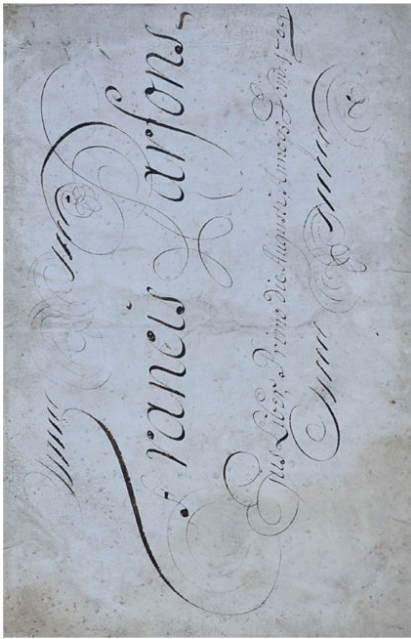 Francis Parsons
Ejus Liber Primo die Augusti Annoq Dom: 1729